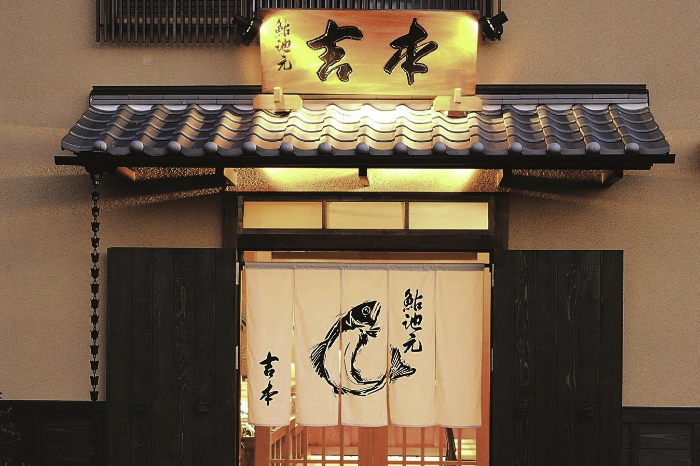 鮎池元
吉本
鮎池元
吉本